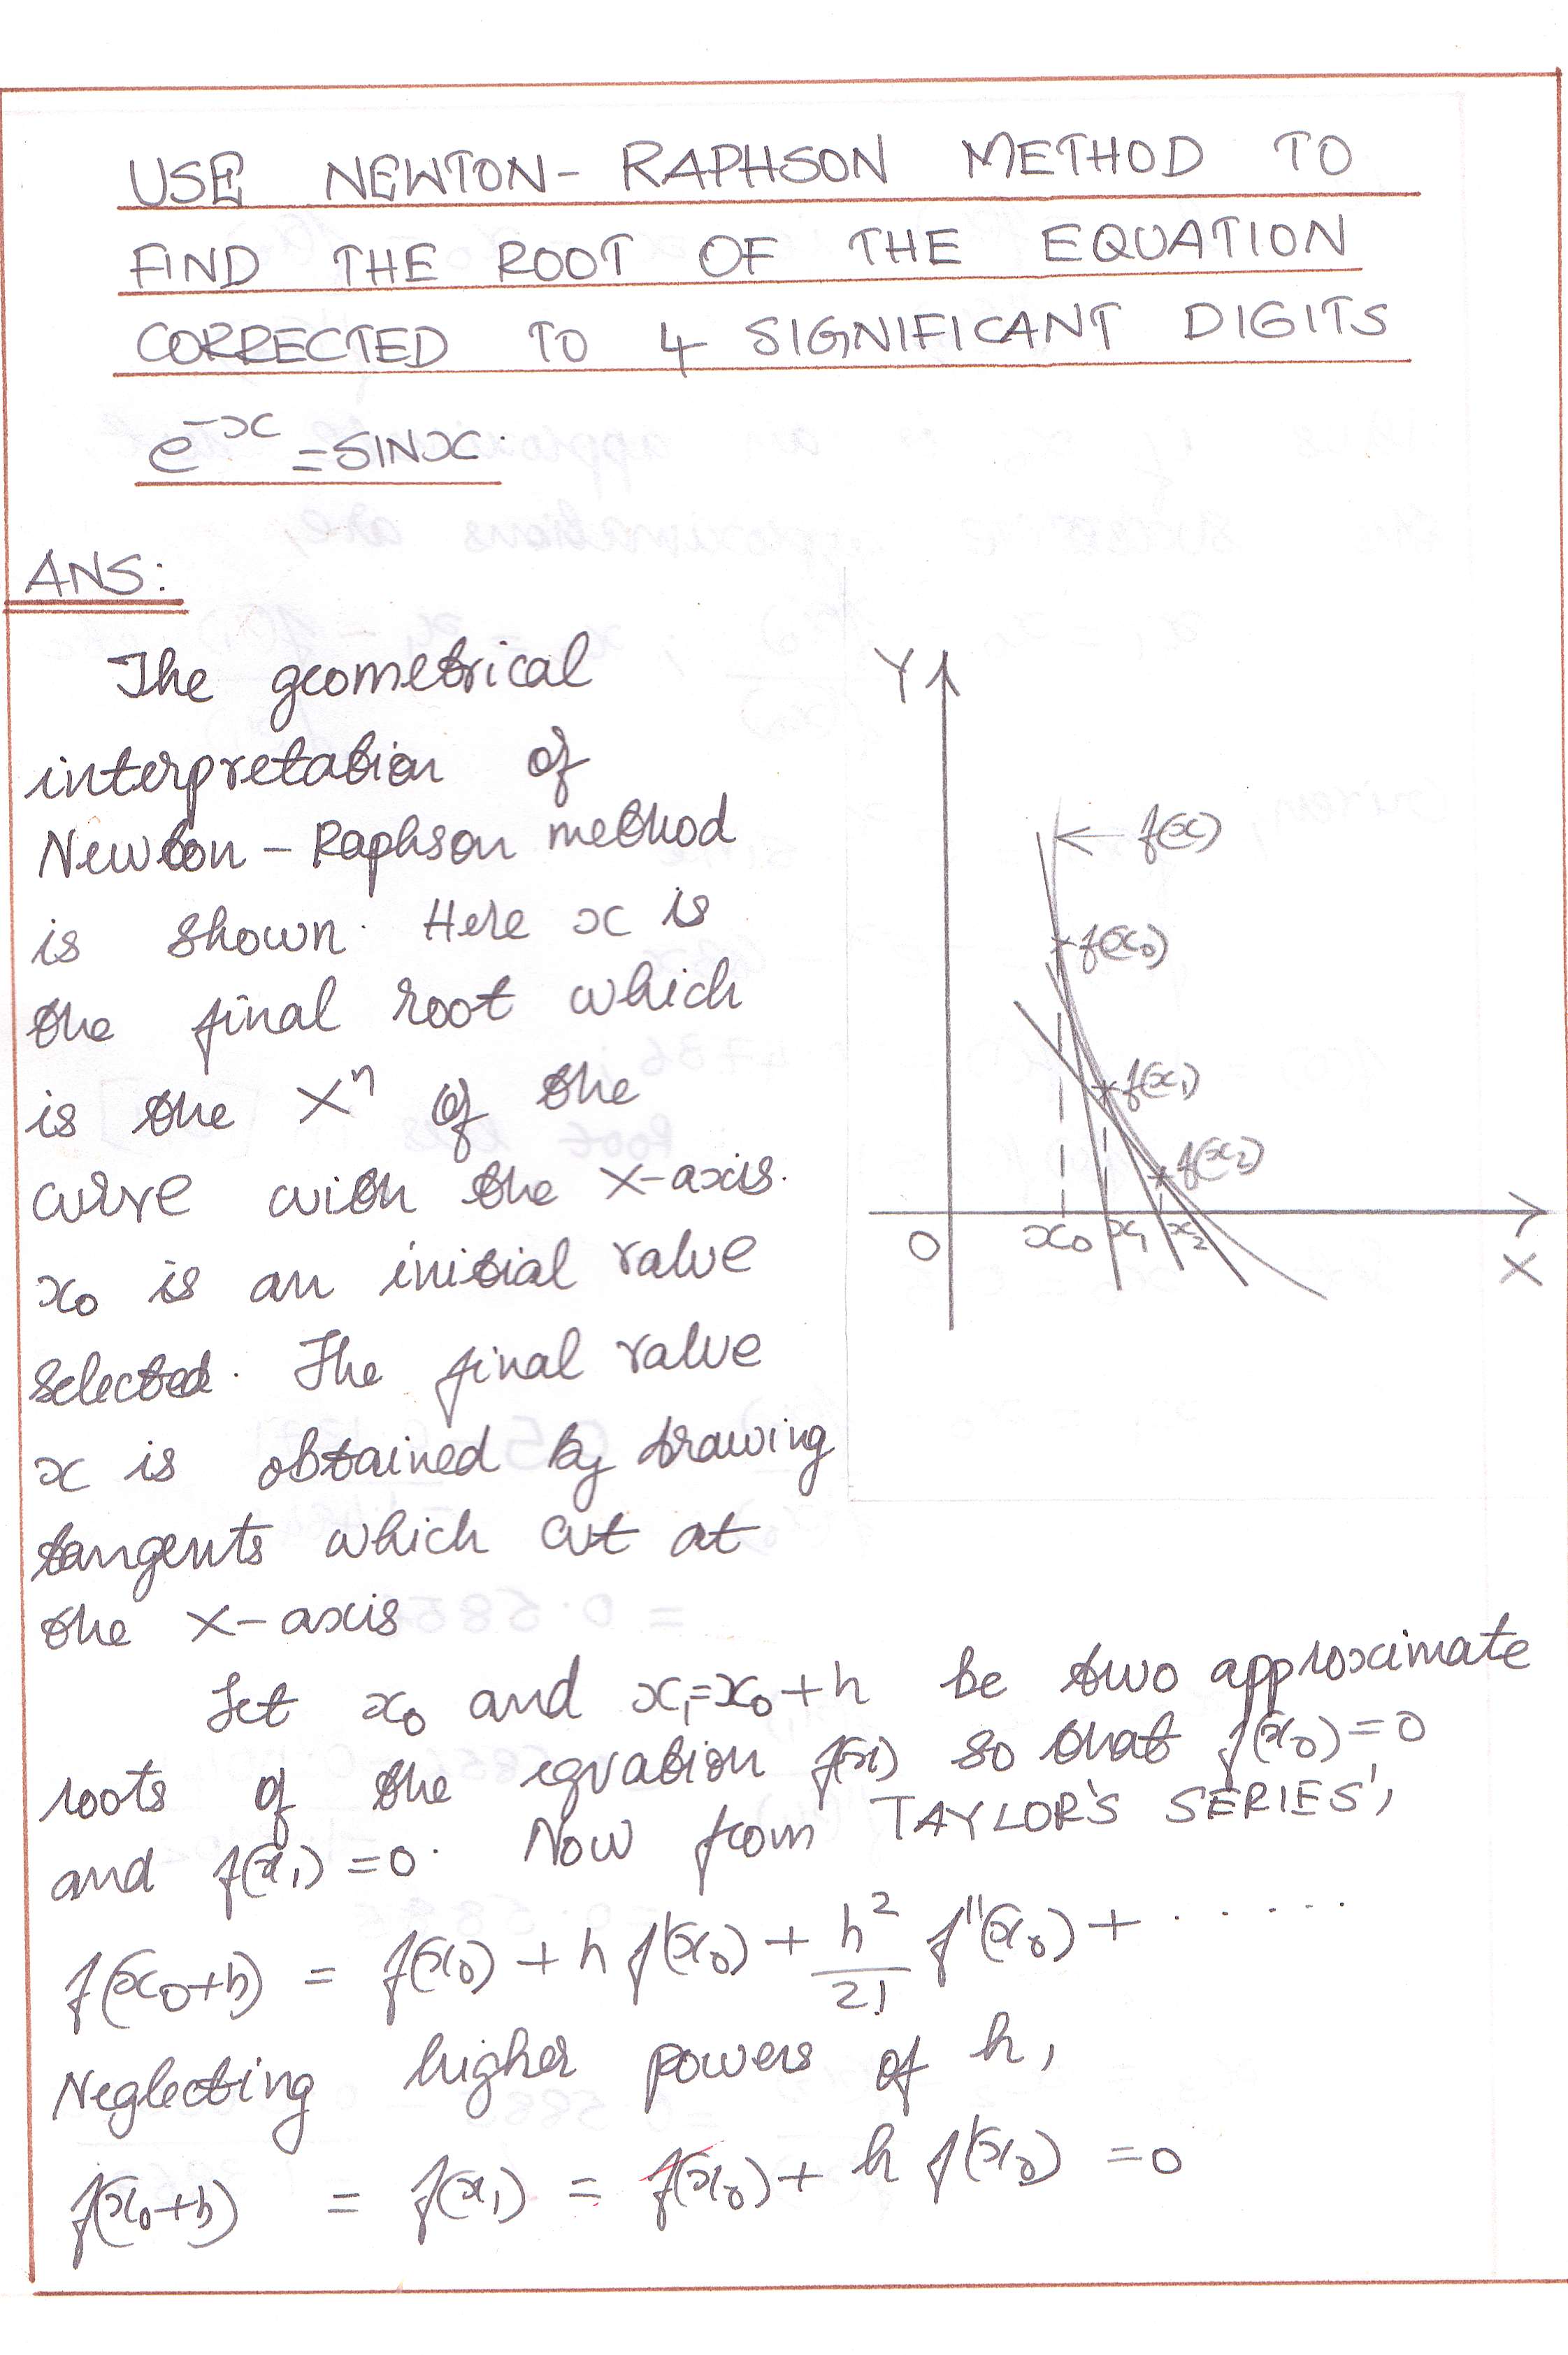 USE NEWTON- RAPHSON METHOD TO
FIND THE ROOT OF THE EQUATION
CORRECTED TO 4 SIGNIFICANT DIGITS
e^-x = SINx.
ANS:
The geometrical
interpretation of
Newton - Raphson method
is shown. Here x is
the final root which
is the X^n of the
curve with the X-axis.
x₀ is an initial value
selected. The final value
x is obtained by drawing
tangents which cut at
the X-axis
Y
f(x)
f(x₀)
f(x₁)
f(x₂)
O x₀ x₁ x₂
X
Let x₀ and x₁=x₀+h be two approximate
roots of the equation f(x) so that f(x₀)=0
and f(x₁)=0. Now from TAYLOR'S SERIES',
f(x₀+h) = f(x₀) + h f'(x₀) + h²/2! f''(x₀) + ......
Neglecting higher powers of h,
f(x₀+h) = f(x₁) = f(x₀) + h f'(x₀) = 0